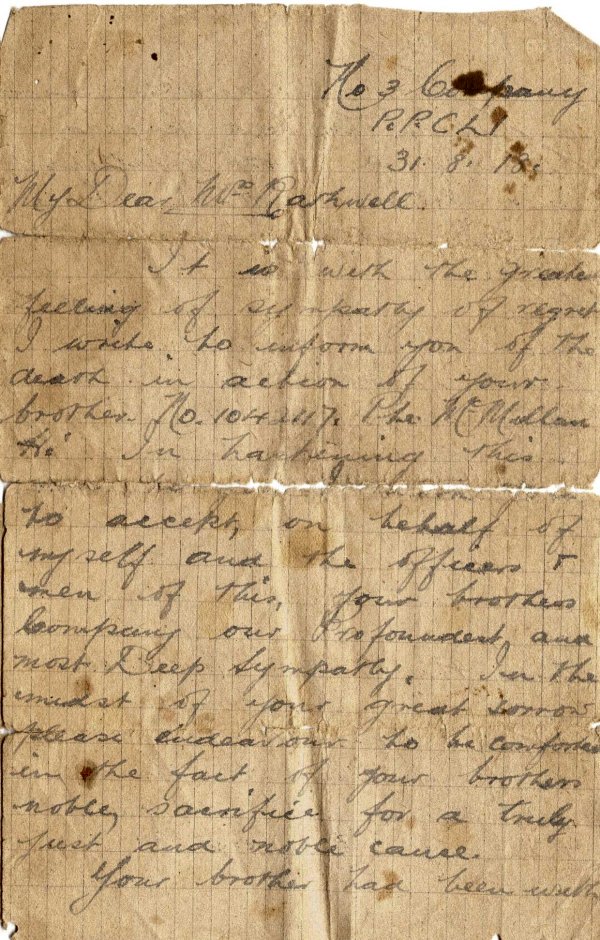 No 3 Company
P.P.C.L.I
31. 8. 18.
My Dear Mrs Rathwell.
It is with the greatest
feeling of sympathy of regret
I write to inform you of the
death in action of your
brother. No. Pte McMillan
In hastening this
to accept, on behalf of
myself and the officers &
men of this, your brothers
Company our Profoundest, and
most Deep Sympathy. In the
midst of your great sorrow
please endeavour to be comforted
in the fact of your brothers
noble, sacrifice for a truly
just and noble cause.
Your brother had been with